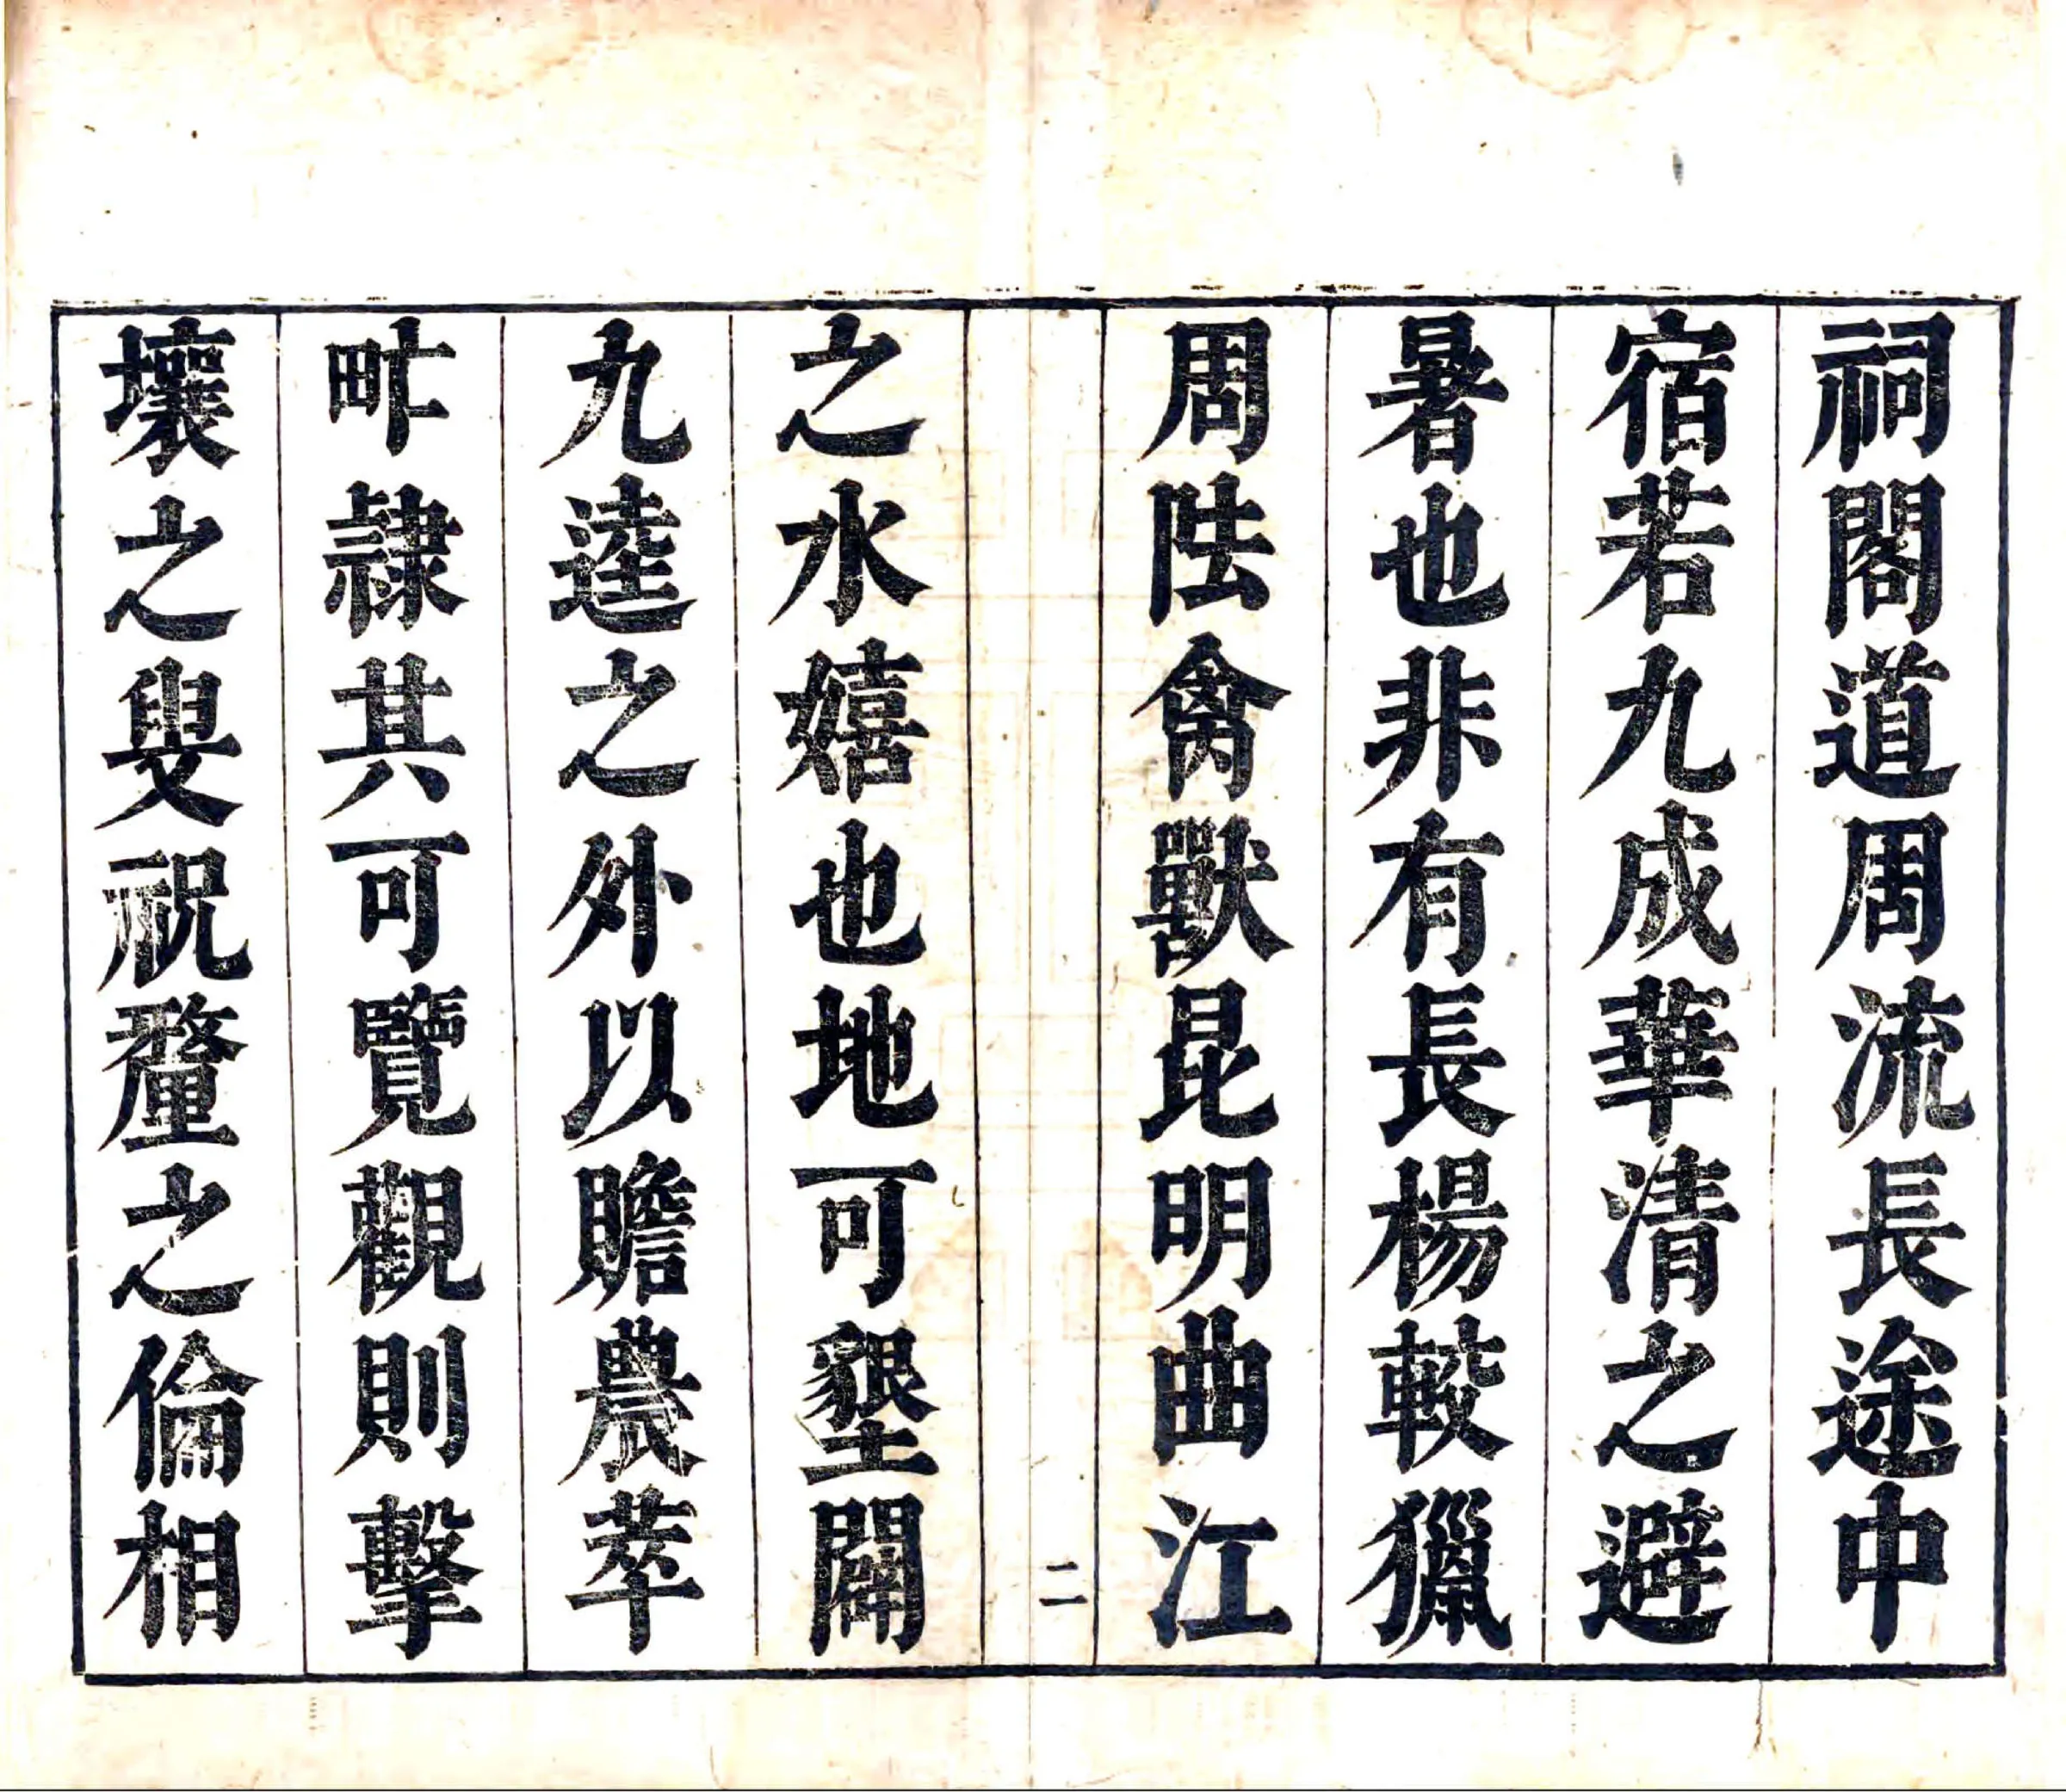 祠閣道周流長途中
宿若九成華清之避
暑也非有長楊較獵
周阹禽獸昆明曲江
二
之水嬉也地可墾闢
九逵之外以贍農萃
甿隸其可覽觀則擊
壤之叟祝釐之倫相